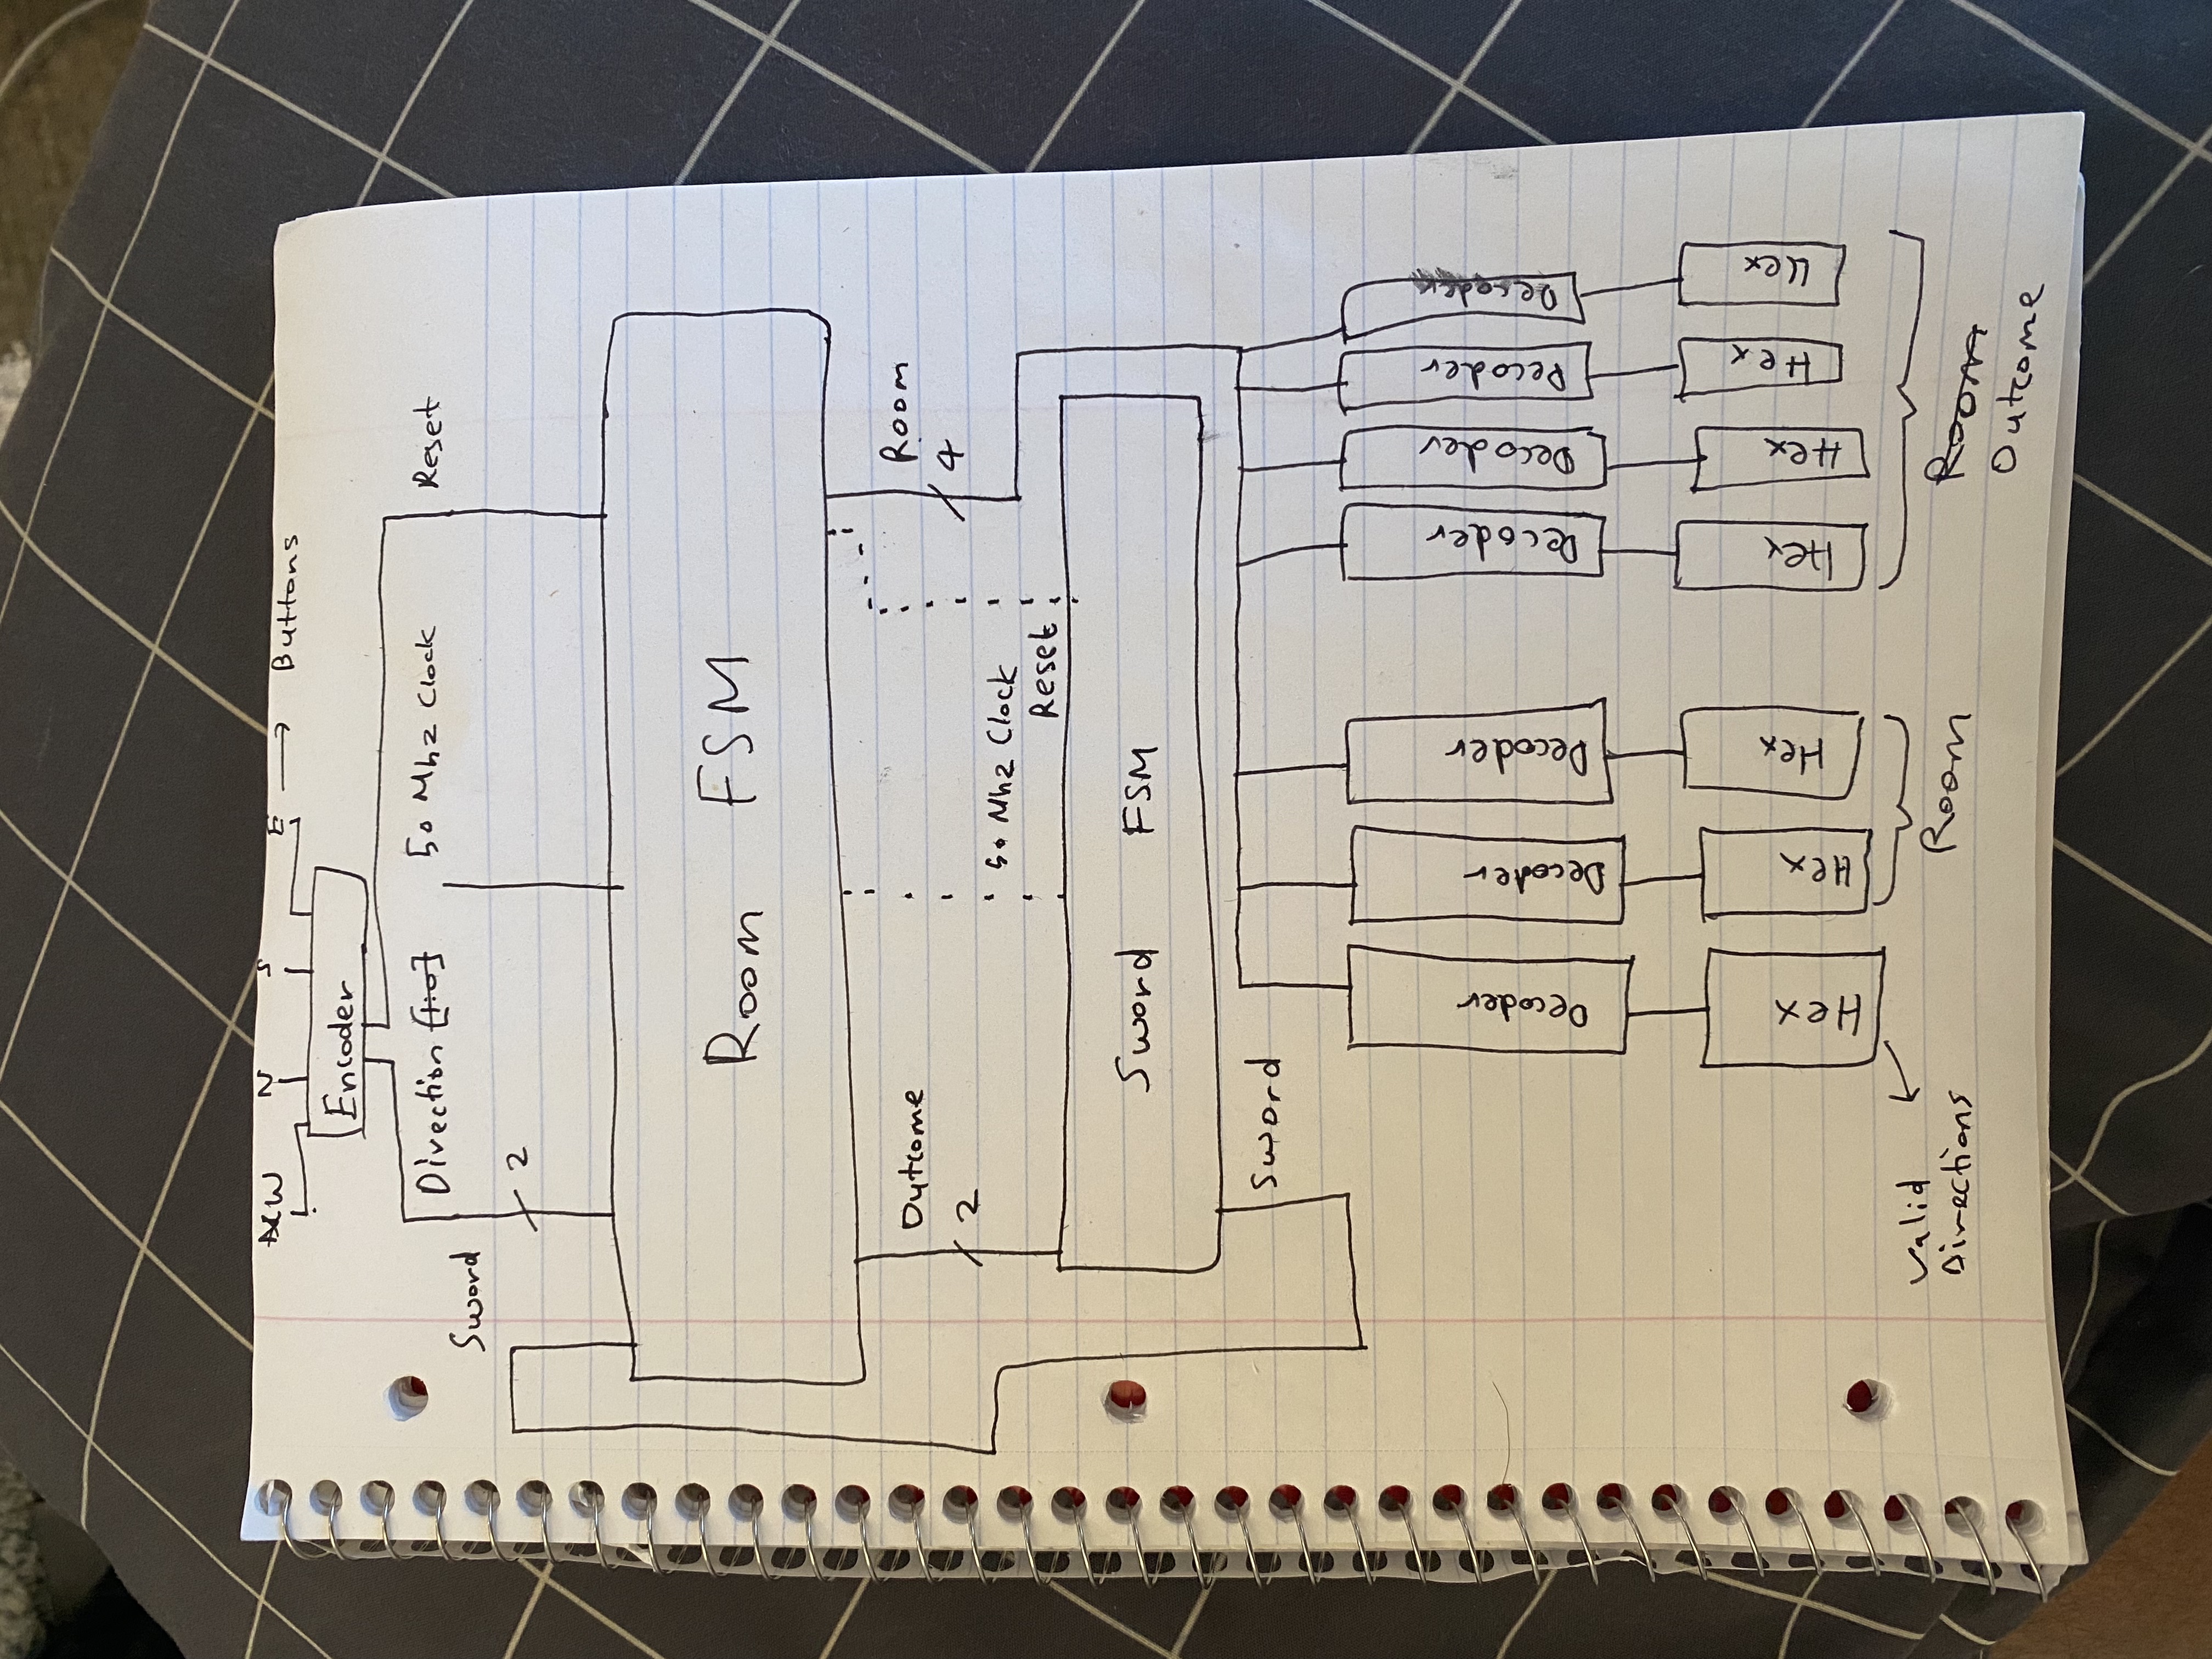 W N S E → Buttons
Encoder
Direction [1:0] 50 Mhz Clock Reset
Sword
2
Room FSM
Outcome Room
2 4
50 Mhz Clock
Reset
Sword FSM
Sword
Decoder Decoder Decoder Decoder Decoder Decoder Decoder
Hex Hex Hex Hex Hex Hex Hex
Valid
Directions
Room
Room
Outcome